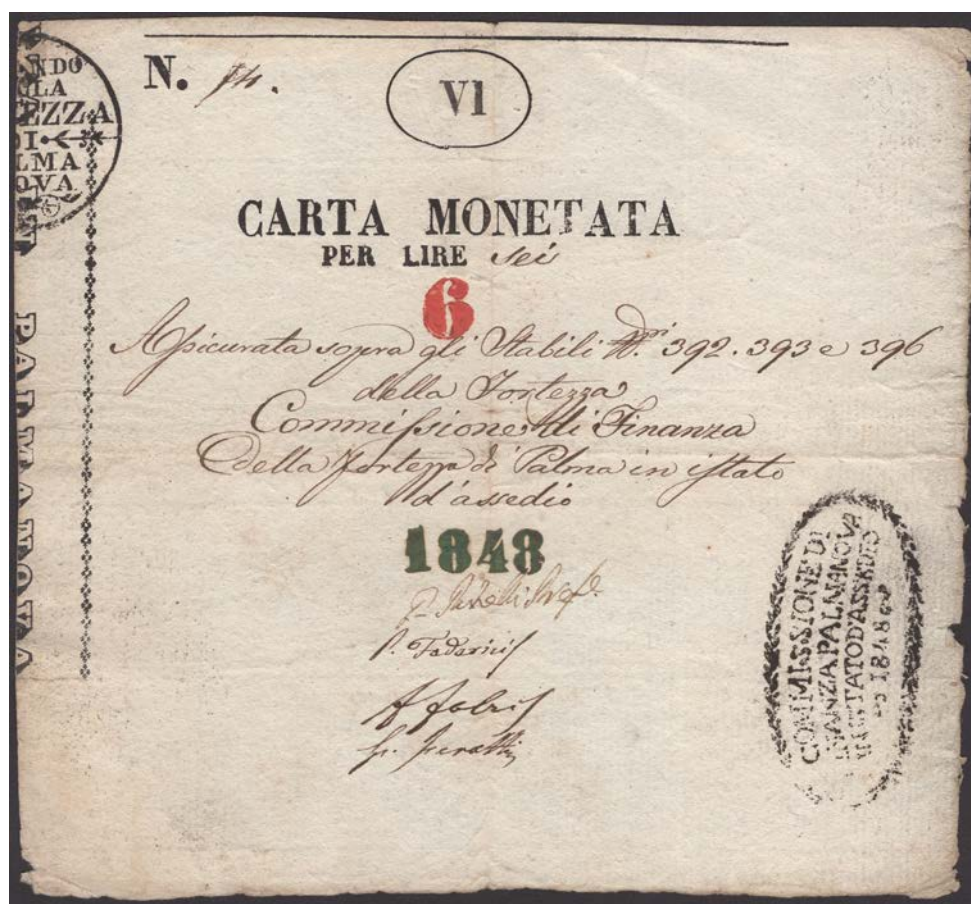 NDO
LA
EZZA
DI
LMA
OVA
PALMANOVA
N. 14.
VI
CARTA MONETATA
PER LIRE sei
6
Assicurata sopra gli Stabili N.ri 392. 393 e 396
della Fortezza
Commissione di Finanza
della fortezza di Palma in istato
d'assedio
1848
COMMISSIONE DI
FINANZA PALMANOVA
IN ISTATO D'ASSEDIO
1848